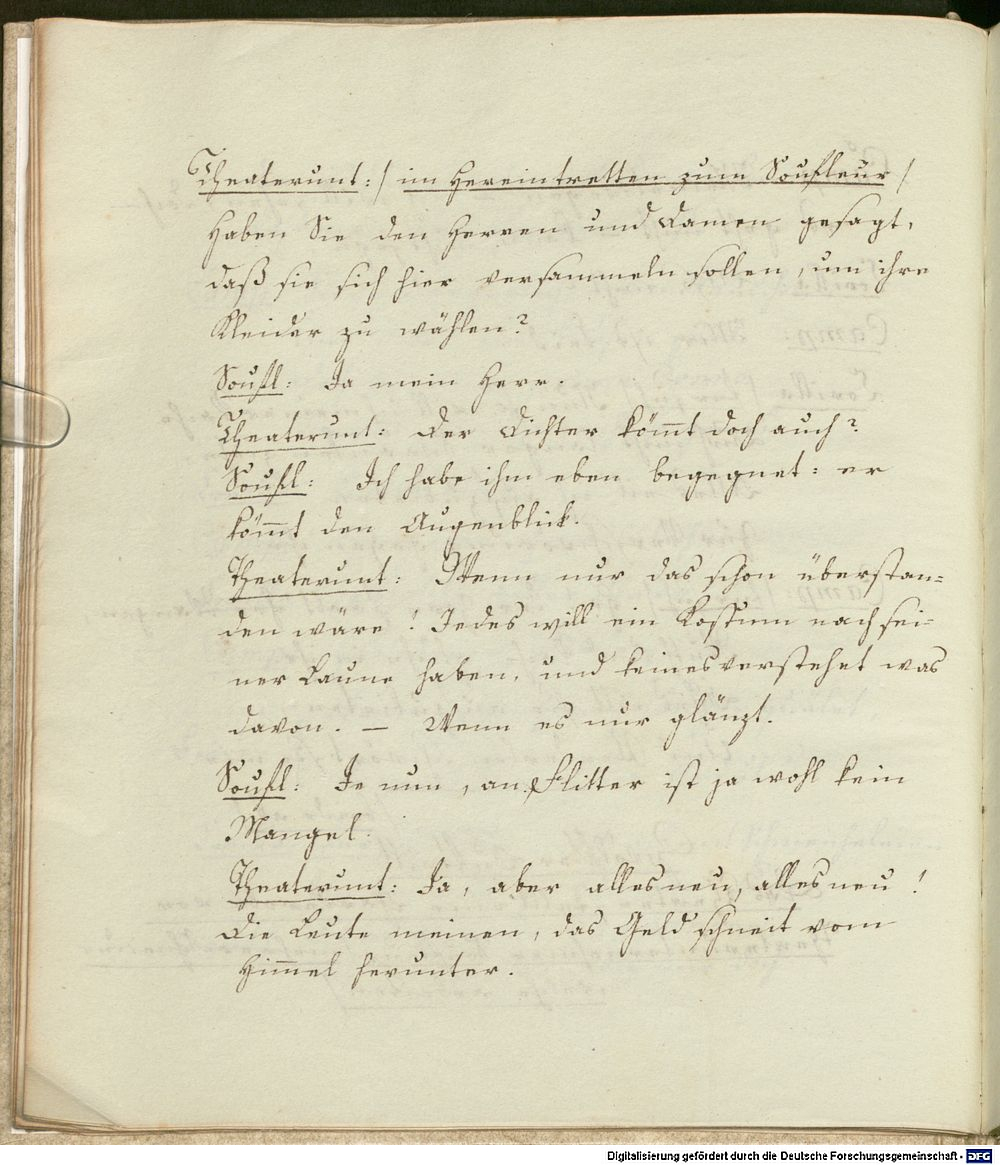 Theaterunt: / im Hereintretten zum Soufleur /
Haben Sie den Herren und Damen gesagt,
daß sie sich hier versammeln sollen, um ihre
Kleider zu wählen?
Soufl: Ja mein Herr.
Theaterunt: Der Dichter kömt doch auch?
Soufl: Ich habe ihm eben begegnet: er
kömt den Augenblick.
Theaterunt: Wenn nur das schon überstan=
den wäre! Jedes will ein Kostum nach sei=
ner Laune haben, und keines verstehet was
davon. — Wenn es nur glänzt.
Soufl: Je nun, an Flitter ist ja wohl kein
Mangel.
Theaterunt: Ja, aber alles neu, alles neu!
Die Leute meinen, das Geld schneit vom
Him̅el herunter.
Digitalisierung gefördert durch die Deutsche Forschungsgemeinschaft - DFG